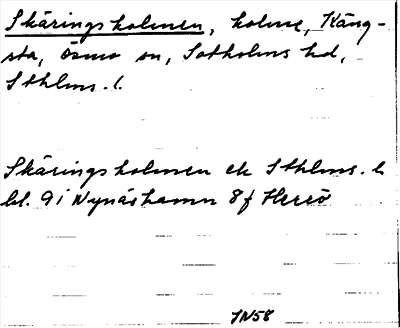 Skäringsholmen, holme, Käng-
sta, Ösmo sn, Sotholms hd,
Sthlms. l.
Skäringsholmen ek Sthlms. l.
bl. 9i Nynäshamn 8f Herrö
JN58